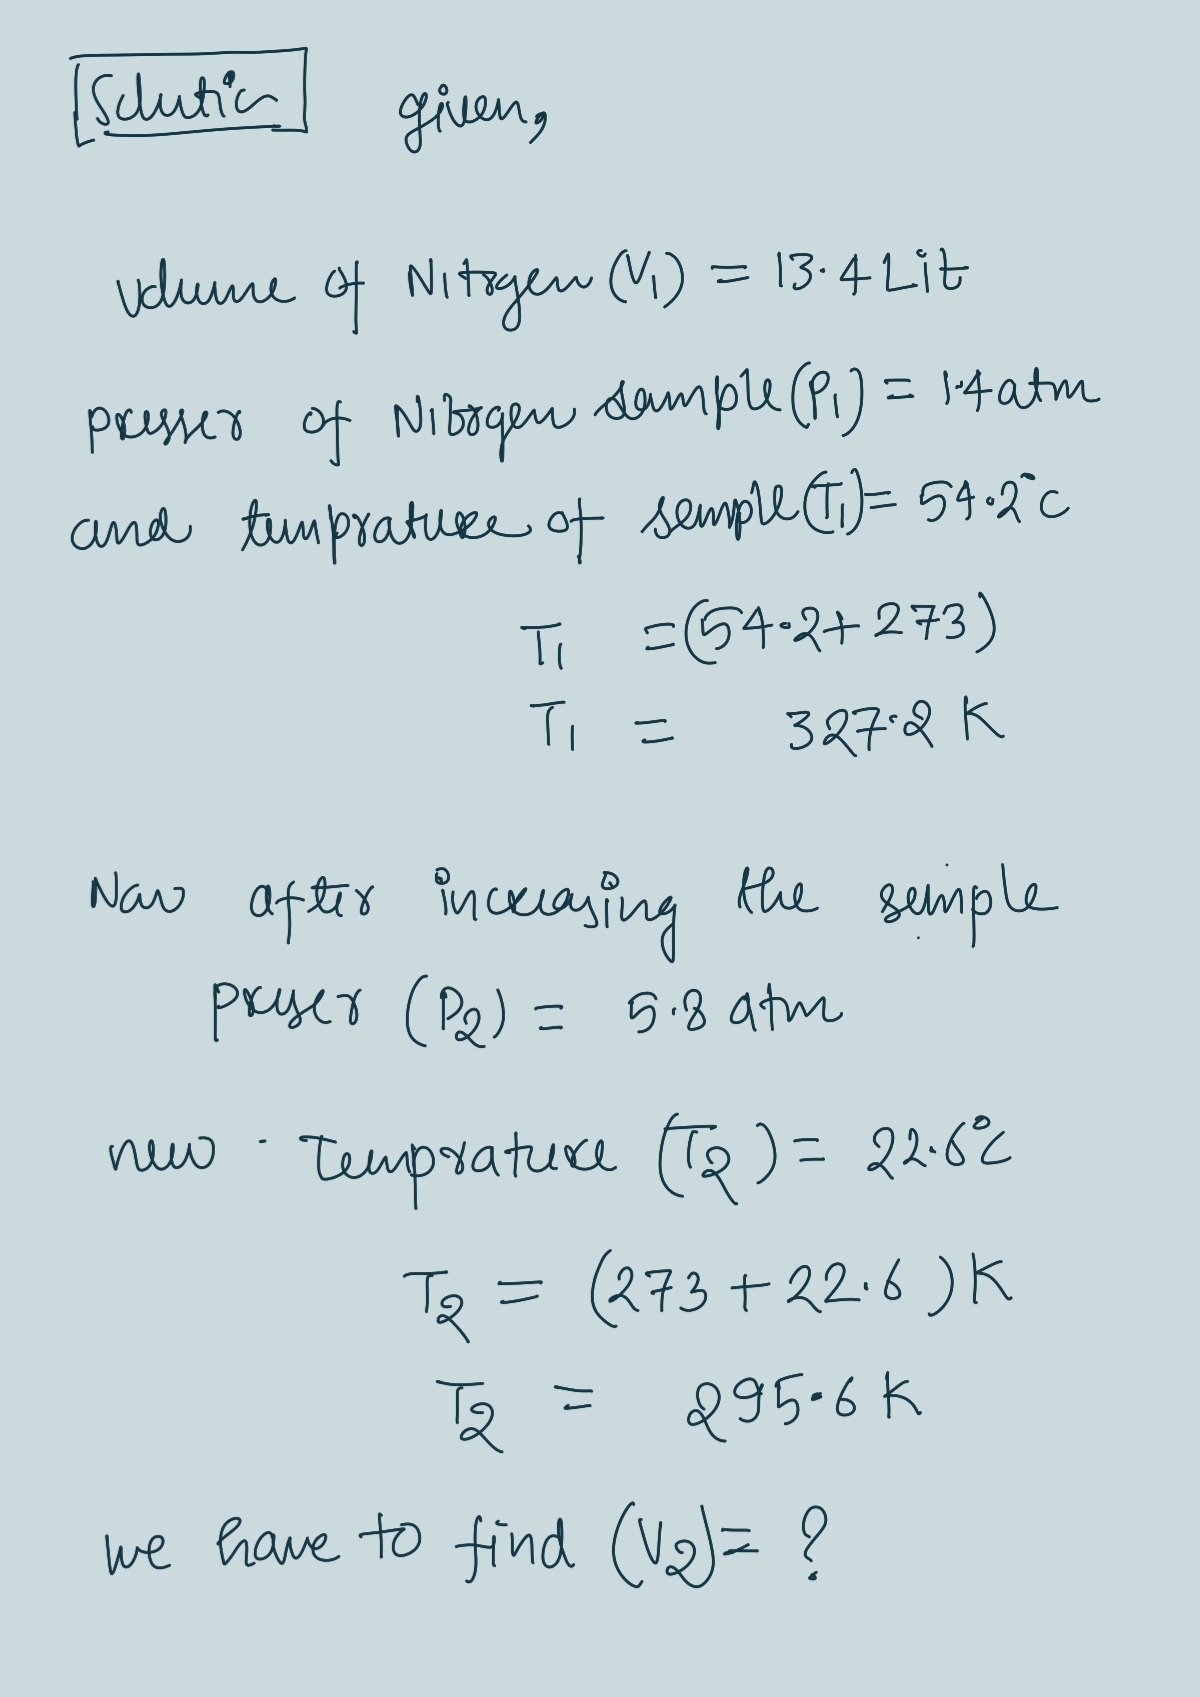 Solution given,
volume of Nitrgen (V₁) = 13.4 Lit
presser of Nitrgen sample (P₁) = 1.4 atm
and temprature of semple (T₁) = 54.2°C
T₁ = (54.2 + 273)
T₁ = 327.2 K
Now after increasing the semple
presser (P₂) = 5.8 atm
new Temprature (T₂) = 22.6°C
T₂ = (273 + 22.6) K
T₂ = 295.6 K
we have to find (V₂) = ?